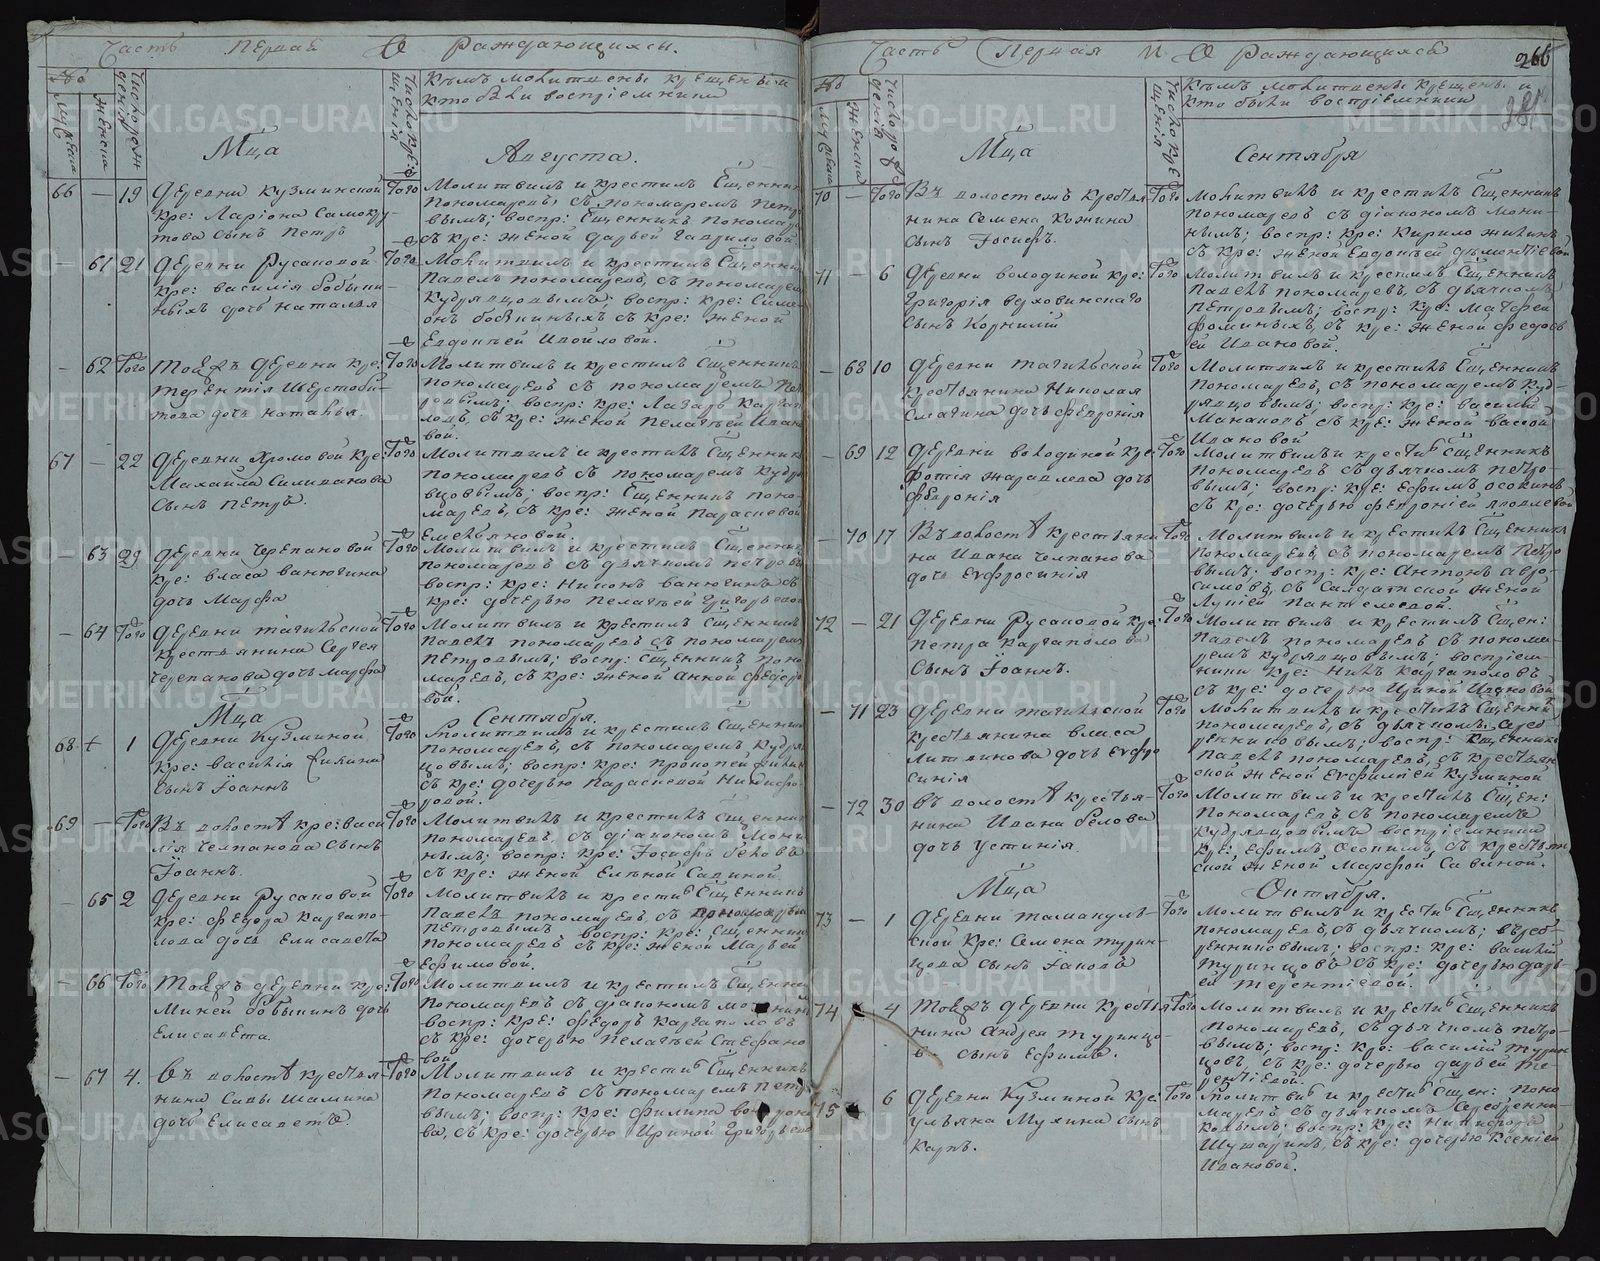 Часть Первая О Раждающихся.
№
мужеска
женска
Число рожденія
Число крещенія
Къмъ молитвены крещены и
кто были воспріемники
Мца Августа.
66 — 19 Деревни Кузминской
кре: Ларіона Самокру-
това сынъ Петръ
Того Молитвилъ и крестилъ Сщенникъ
пономаревъ, съ пономаремъ Петро
вымъ; воспр: Сщенникъ Понома
съ кре: женой Дарьей Гавриловой
— 61 21 Деревни Русаковой
кре: василія бобыки-
ныхъ дочь наталья
Того Молитвилъ и крестилъ Сщенник
Павелъ пономаревъ, съ пономарем
Кудрявцовымъ; воспр: кре: Симе
онъ бобыкиныхъ съ кре: женой
Евдокіей Ивойловой.
— 62 Того Тояжъ деревни кре:
терентія Шерстоби-
това дочь наталья.
Того Молитвилъ и крестилъ Сщенникъ
пономаревъ съ пономаремъ Пет
ровымъ; воспр: кре: Лазарь Каргап
ловъ, съ кре: женой пелагеей Иван
вой.
67 — 22 Деревни Хромовой кре:
Михайла Селиванова
сынъ Петръ.
Того Молитвилъ и крестилъ Сщенник
пономаревъ съ пономаремъ Кудря
вцовымъ; воспр: Сщенникъ поно-
маревъ, съ кре: женой Параскевой
Емельяновой.
— 63 29 Деревни Черепановой
кре: власа ванюгина
дочь Марфа
Того Молитвилъ и крестилъ Сщенник
пономаревъ съ дьячкомъ петровы
воспр: кре: Никонъ ванюгинъ съ
кре: дочерью Пелагеей Григорьевой
— 64 Того Деревни тагильской
Крестьянина Сергея
Черепанова дочь марфа
Того Молитвилъ и крестилъ Сщенникъ
Павелъ пономаревъ съ пономарем
петровымъ; воспр: Сщенникъ поно
маревъ, съ кре: женой Анной федоро
вой.
Мца Сентября.
68 + 1 Деревни Кузминой
кре: василія
сынъ Iоаннъ
Того Молитвилъ и крестилъ Сщенник
пономаревъ, съ пономаремъ Кудря
цовымъ; воспр: кре: Прокопей
съ кре: дочерью параскевой Никифо
ровой.
69 — Того Въ волости кре: васи
лія Челпанова сынъ
Iоаннъ.
Того Молитвилъ и крестилъ Сщенник
пономаревъ, съ діакономъ Мони
нымъ; воспр: кре: Iосифъ беловъ
съ кре: женой Еленой Савиной.
— 65 2 Деревни Русаковой
кре: федора Каргапо-
лова дочь Елисавета
Того Молитвилъ и крестилъ Сщенникъ
Павелъ пономаревъ, съ пономаремъ
Петровымъ воспр: кре: Сщенник
пономаревъ съ кре: женой Марьей
Ефимовой.
— 66 Того Тояжъ деревни кре:
Михей бобыкинъ дочь
Елисавета.
Того Молитвилъ и крестилъ Сщенник
пономаревъ съ діакономъ монин
воспр: кре: федоръ Каргаполовъ
съ кре: дочерью Пелагеей Стефано
вой
— 67 4. Въ волости крестья-
нина Савы Шалина
дочь Елисавета.
Того Молитвилъ и крестилъ Сщенникъ
пономаревъ съ пономаремъ петр
вымъ; воспр: кре: филипа
ва, съ кре: дочерью Ириной Григорьево
Часть Первая О Раждающихся
266
281
№
мужеска
женска
Число рожденія
Число крещенія
Къмъ молитвены крещены и
кто были воспріемники
Мца Сентября
70 — Того Въ волости Крестья-
нина Семена Кожина
сынъ Iосифъ.
Того Молитвилъ и крестилъ Сщенникъ
пономаревъ съ діакономъ Мони-
нымъ; воспр: кре: Кирило
съ кре: женой Евдокіей дементіевой
71 — 6 Деревни володиной кре:
Григорія верховинскаго
сынъ Корнилій
Того Молитвилъ и крестилъ Сщенникъ
Павелъ пономаревъ, съ дьячкомъ
петровымъ; воспр: кре: Матфей
фоминыхъ, съ кре: женой федось
ей Ивановой.
— 68 10 Деревни тагильской
Крестьянина Николая
Смагина дочь февронія
Того Молитвилъ и крестилъ Сщенникъ
пономаревъ, съ пономаремъ Куд-
рявцовымъ; воспр: кре: василій
Манаковъ съ кре: женой васой
Ивановой
— 69 12 Деревни володиной кре:
фотія Журавлева дочь
февронія
Того Молитвилъ и крестилъ Сщенникъ
пономаревъ съ дьячкомъ петро-
вымъ; воспр: кре: Ефимъ осокинъ
съ кре: дочерью февроніей яковлевой
— 70 17 Въ волости крестьяни
на Ивана Челпанова
дочь Ефросинія
Того Молитвилъ и крестилъ Сщенникъ
пономаревъ, съ пономаремъ Петро
вымъ; воспр: кре: Антонъ Авро-
симовъ, съ Салдатской женой
Лукіей Пантелеевой.
72 — 21 Деревни Русаковой кре:
Петра Каргаполова
сынъ Iоаннъ.
Того Молитвилъ и крестилъ Сщен:
Павелъ пономаревъ съ понома-
ремъ кудрявцовымъ; воспріем-
ники кре: Никъ Каргаполовъ
съ кре: дочерью Ириной Ивановой
— 71 23 Деревни тагильской
Крестьянина власа
Литвинова дочь Евфро
синія
Того Молитвилъ и крестилъ Сщенни
пономаревъ, съ дьячкомъ Сереб
ренниковымъ; воспр: Сщенникъ
Павелъ пономаревъ, съ крестьян
ской женой Евфиміей Кузминой
— 72 30 въ волости крестья-
нина Ивана Белова
дочь Устинія.
Того Молитвилъ и крестилъ Сщен:
пономаревъ съ пономаремъ
Кудрявцовымъ воспріемники
кре: Ефимъ Осокинъ съ крестьян
ской женой Марфой Савиной.
Мца Октября.
73 — 1 Деревни Тамакуль-
ской кре: Семена турин-
цова сынъ Iаковъ
Того Молитвилъ и крестилъ Сщенникъ
пономаревъ, съ дьячкомъ; сереб-
ренниковымъ; воспр: кре: василій
туринцовъ съ кре: дочерью дарь-
ей терентіевой.
74 — 4 Тояжъ деревни Крестья
нина Андрея туринцо-
ва сынъ Ефимъ.
Того Молитвилъ и крестилъ Сщенникъ
пономаревъ, съ дьячкомъ петро-
вымъ; воспр: кре: василій турин
цовъ, съ кре: дочерью дарьей те-
рентіевой.
75 — 6 Деревни Кузминой кре:
ульяна Мухина сынъ
Карпъ.
Того Молитвилъ и крестилъ Сщен: поно
маревъ съ дьячкомъ Серебренни-
ковымъ; воспр: кре: Никифоръ
Шушаринъ, съ кре: дочерью Ксеніей
Ивановой.
METRIKI.GASO-URAL.RU